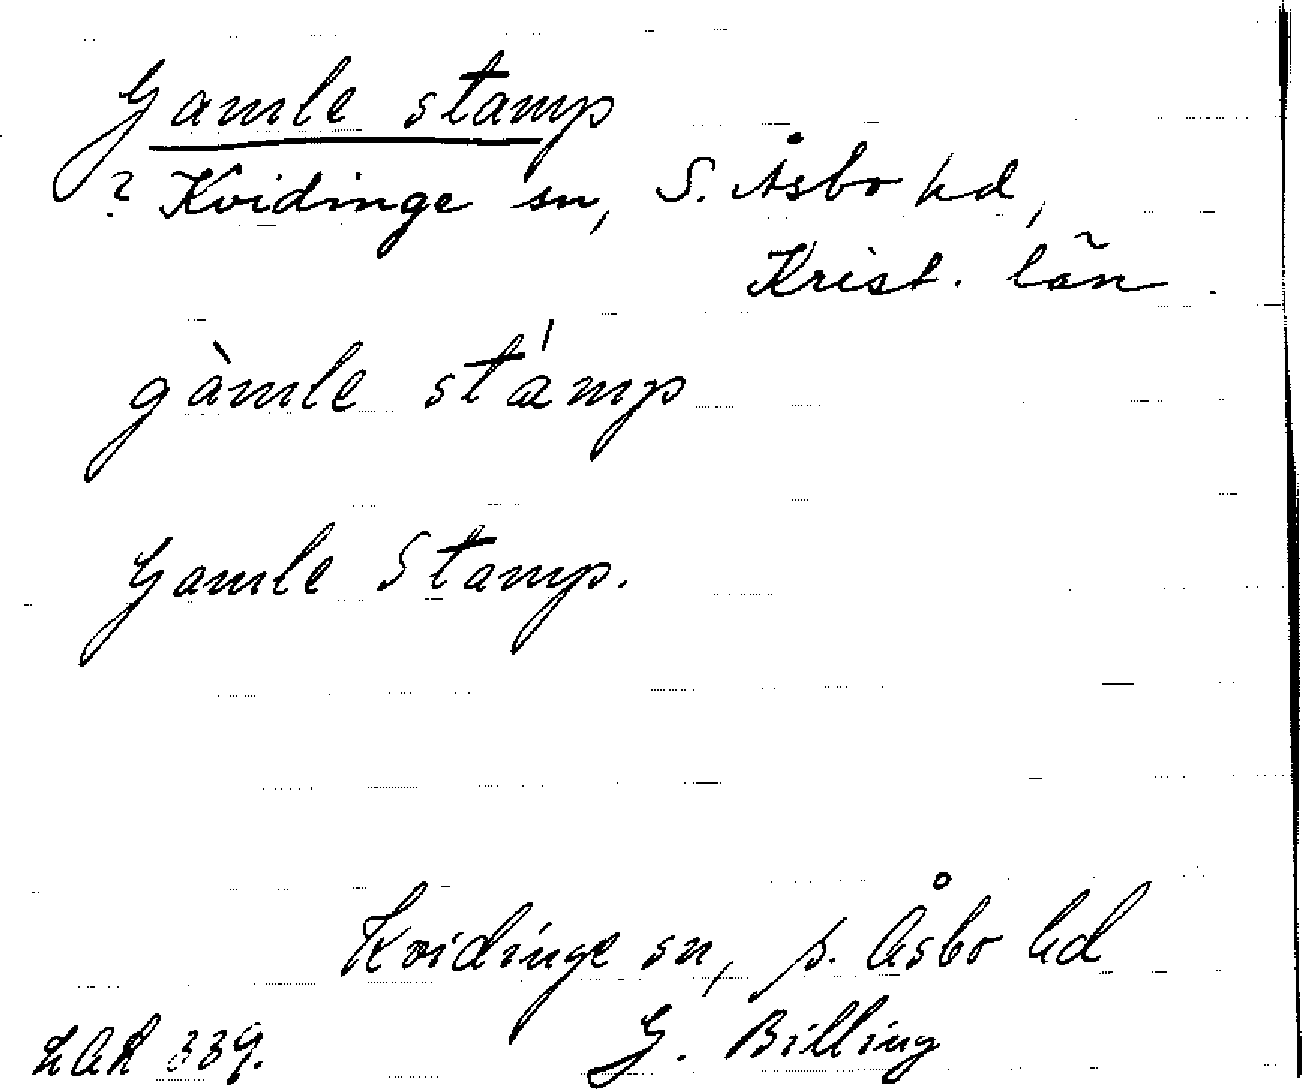 Gamle stamp
? Kvidinge sn, S. Åsbo hd,
Krist. län
gàmle stámp
Gamle Stamp.
Kvidinge sn, s. Åsbo hd
LAR 339. G. Billing